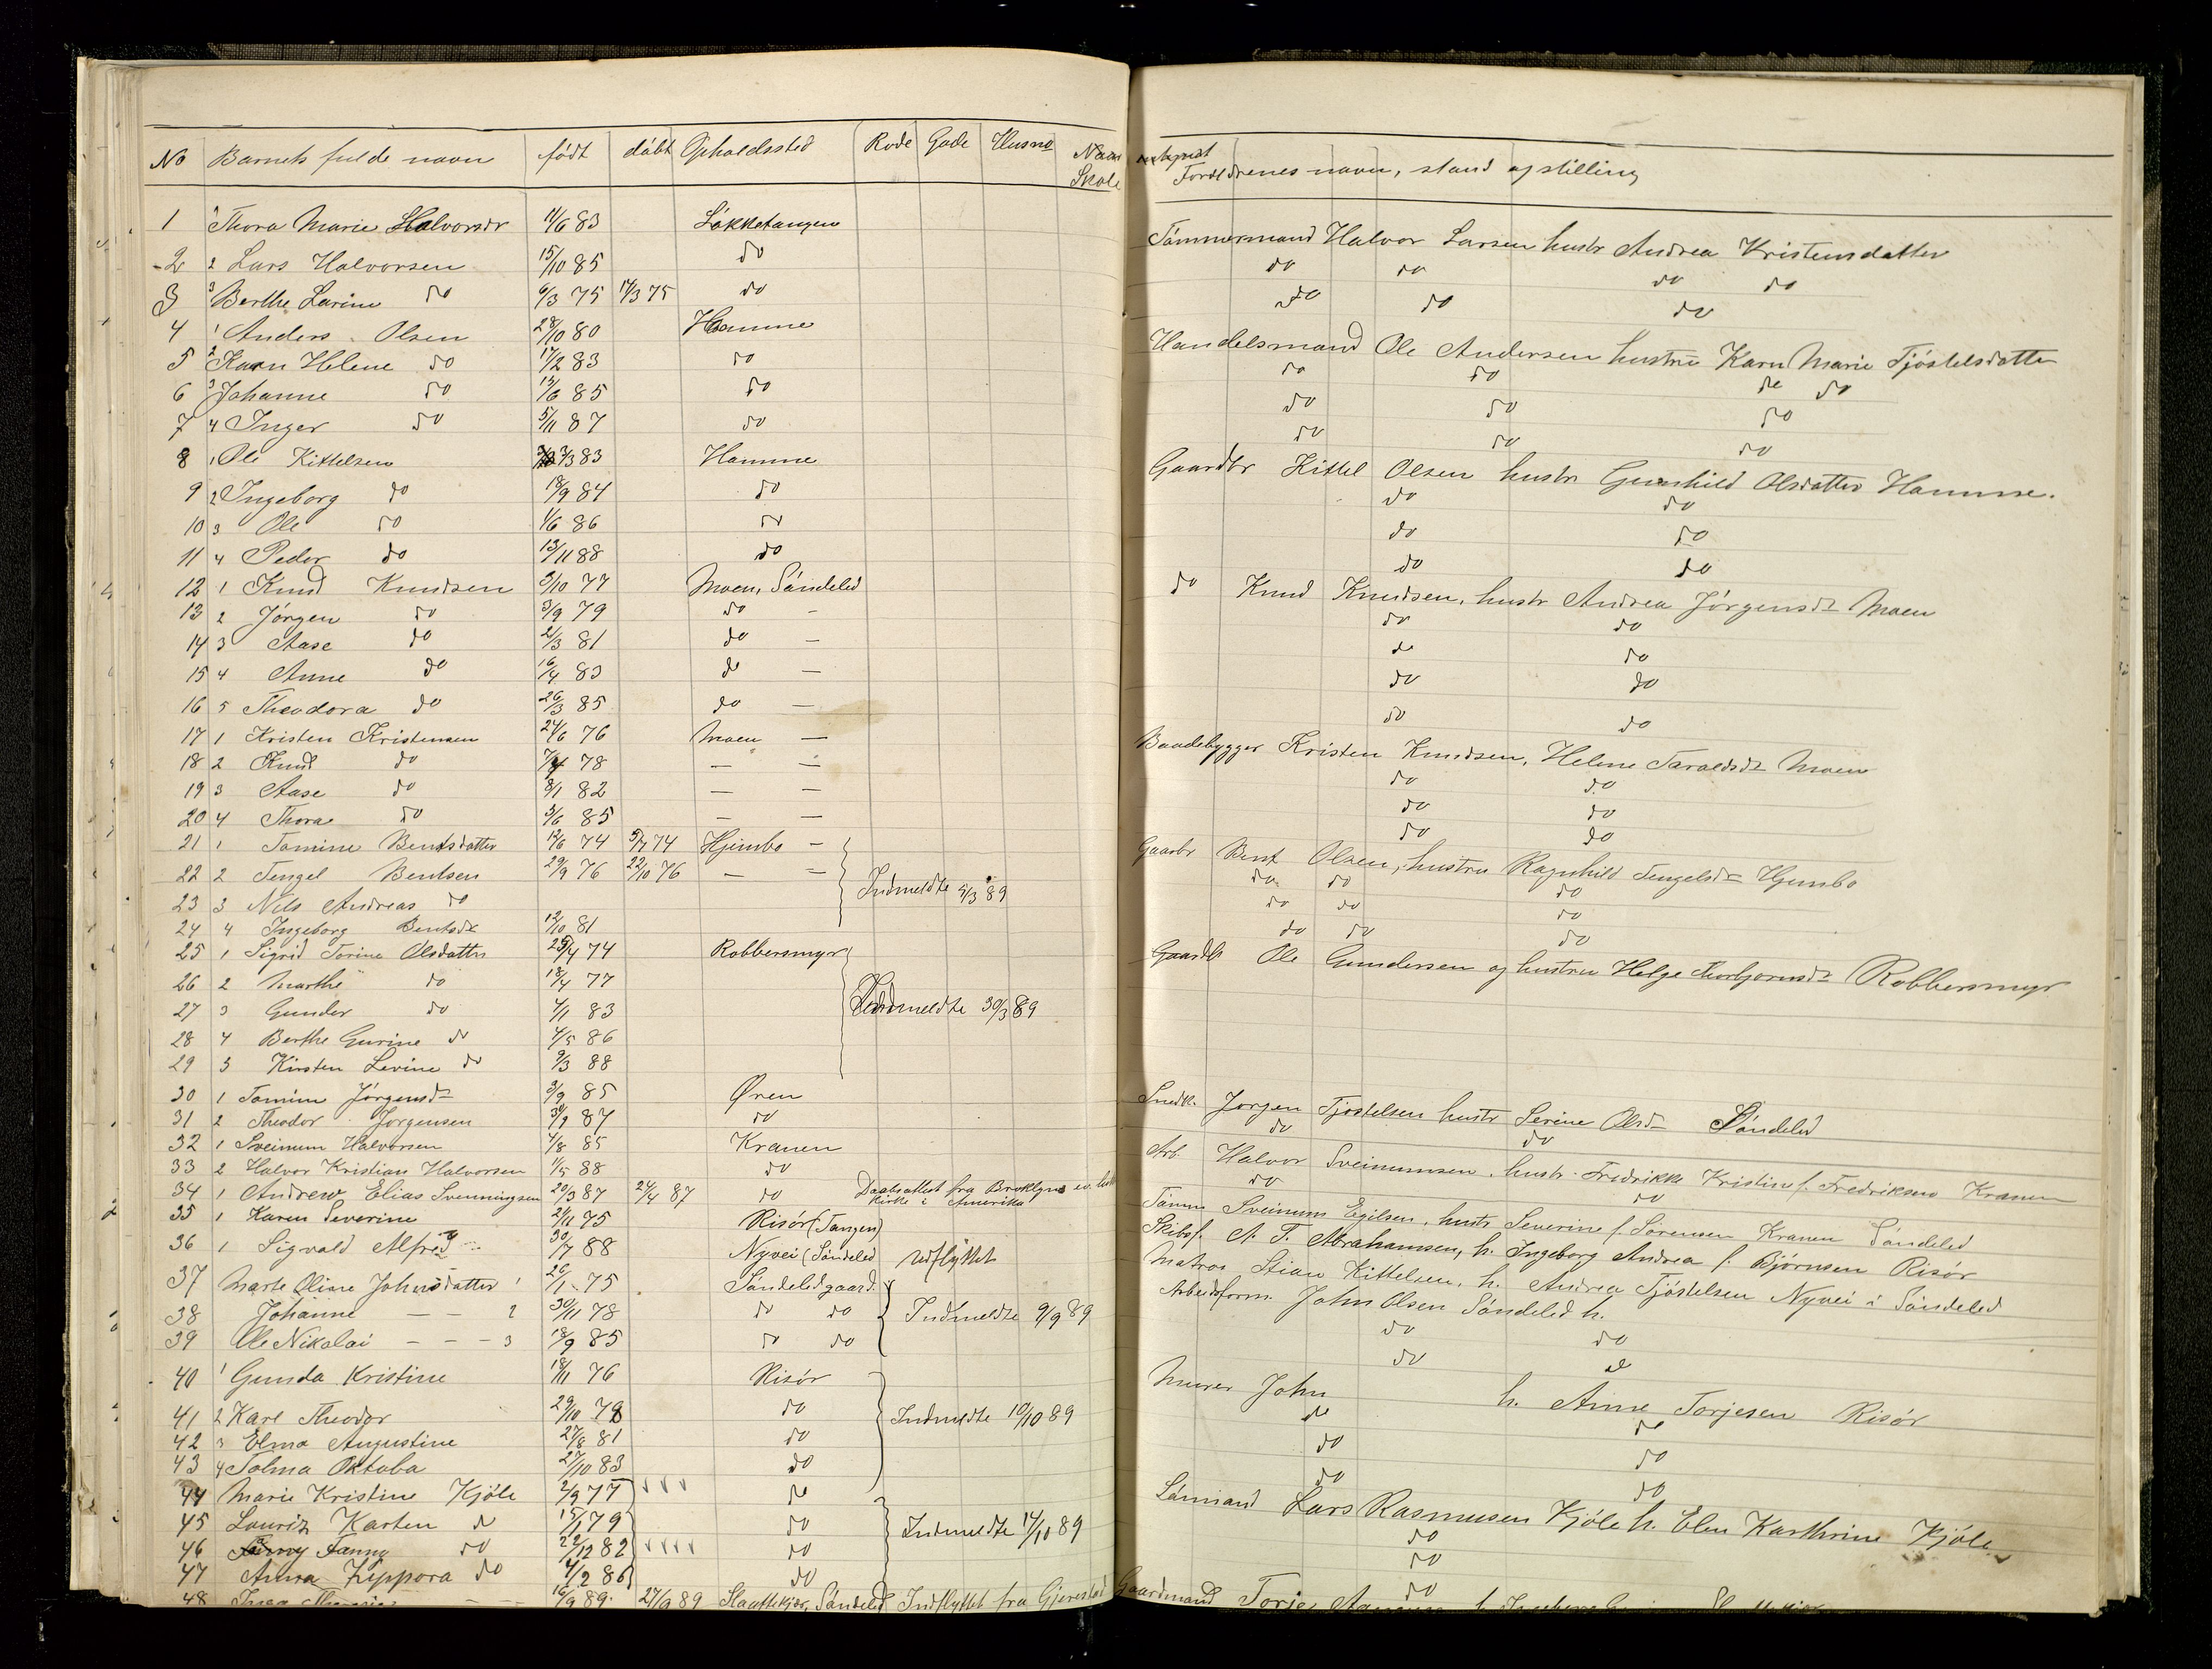 No Barnets fulde navn født döbt Opholdssted Rode Gade Husno
Skole
Foreldrenes navn, stand og stilling
1 1 Thora Marie Halvorsdr 11/6 83 Lökketangen Tömmermand Halvor Larsen hustr Andrea Kristensdatter
2 2 Lars Halvorsen 15/10 85 do do do do do
3 3 Berthe Larine do 6/3 75 14/3 75 do do do do
4 1 Anders Olsen 28/10 80 Hamme Handelsmand Ole Andersen hustru Karn Marie Tjöstelsdatter
5 2 Karn Helene do 17/2 83 do do do do do
6 3 Johanne do 14/6 85 do do do do
7 4 Inger do 5/11 87 do do do do
8 1 Ole Kittelsen 7/3 83 Hamme Gaardbr Kittel Olsen hustr Gunhild Olsdatter Hamme.
9 2 Ingeborg do 18/9 84 do do do
10 3 Ole do 1/6 86 do do do
11 4 Peder do 13/11 88 do do do
12 1 Knud Knudsen 9/10 77 Moen, Söndeled do Knud Knudsen, hustr Andrea Jörgensdr Moen
13 2 Jörgen do 3/9 79 do - do do
14 3 Aase do 2/3 81 do - do do
15 4 Anne do 16/4 83 do - do do
16 5 Theodora do 26/3 85 do - do do
17 1 Kristen Kristensen 24/6 76 Moen - Baadebygger Kristen Knudsen, Helene Taraldsdr Moen
18 2 Knud do 7/4 78 - - do do
19 3 Aase do 8/1 82 - - do do
20 4 Thora do 3/6 85 - - do do
21 1 Tomine Bentsdatter 12/6 74 5/7 74 Hjembo - Gaardbr Bent Olsen, hustru Ragnhild Tengelsdr Hjembo
22 2 Tengel Bentsen 29/9 76 22/10 76 - - Indmeldte 4/3 89 do do do
23 3 Nels Andreas do do do do
24 4 Ingeborg Bentsdr 12/10 81 do do do
25 1 Sigrid Torine Olsdatter 25/4 74 Robbersmyr Gaardb Ole Gundersen og hustru Helge Thorbjornsdr Robbersmyr
26 2 Marthe do 18/4 77
27 3 Gunder do 4/1 83 Indmeldte 30/3 89
28 4 Berthe Gurine do 4/5 86
29 5 Kirsten Levine do 9/3 88
30 1 Tomine Jörgensdr 3/9 85 Øren Snedk. Jorgen Tjostelsen hustr Serine Olsdr Söndeled
31 2 Theodor Jorgensen 30/9 87 do do do
32 1 Sveinum Halvorsen 4/8 85 Kranen Arb. Halvor Sveinumsen, hustr. Fredrikke Kristine f. Fredriksen Kranen
33 2 Halvor Kristian Halvorsen 11/5 88 do do do
34 1 Andrew Elias Svenningsen 20/3 87 24/4 87 do Daabsattest fra Broklyns ev. luth kirke i Amerika Tömm Sveinum Egilsen, hustr Severine f. Sörensen Kranen Söndeled
35 1 Karen Severine 21/11 75 Risör (Tangen) Skibsf. A. T. Abrahamsen, h. Ingeborg Andrea f. Björnsen Risör
36 1 Sigvald Alfred 30/7 88 Nyvei (Söndeled Udflyttet Matros Stian Kittelsen, h. Andrea Tjöstelsen Nyvei i Söndeled
37 Marte Oline Johnsdatter 1 26/1 75 Söndeledgaard. Arbeidsform. John Olsen Söndeled h.
38 Johanne - - 2 30/11 78 do do Indmeldte 9/9 89 do do
39 Ole Nikolai - - - 3 18/9 85 do do do do
40 1 Gunda Kristine 18/11 76 Risör Murer John h. Anne Torjesen Risör
41 2 Karl Theodor 29/10 78 do Indmeldte 10/10 89 do do
42 3 Elma Augustine 27/8 81 do do do
43 4 Tolma Oktoba 27/10 83 do do do
44 Marie Kristine Kjöle 2/9 77 do Sömand Lars Rasmusen Kjöle h. Elen Kathrine Kjöle
45 Lauriz Karten do 15/1 79 do Indmeldte 14/10 89 do
46 Fanny do 22/12 82 do do
47 Anna Zippora do 4/2 86 do do
48 16/9 89. 27/9 89 Slaattekjær, Söndeled Indflyttet fra Gjerestad Gaardmand Torje